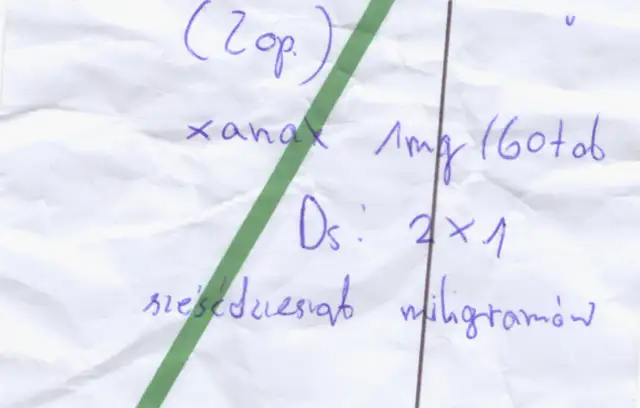 (2 op.)
xanax 1mg/60tab
Ds: 2x1
sześćdziesiąt miligramów